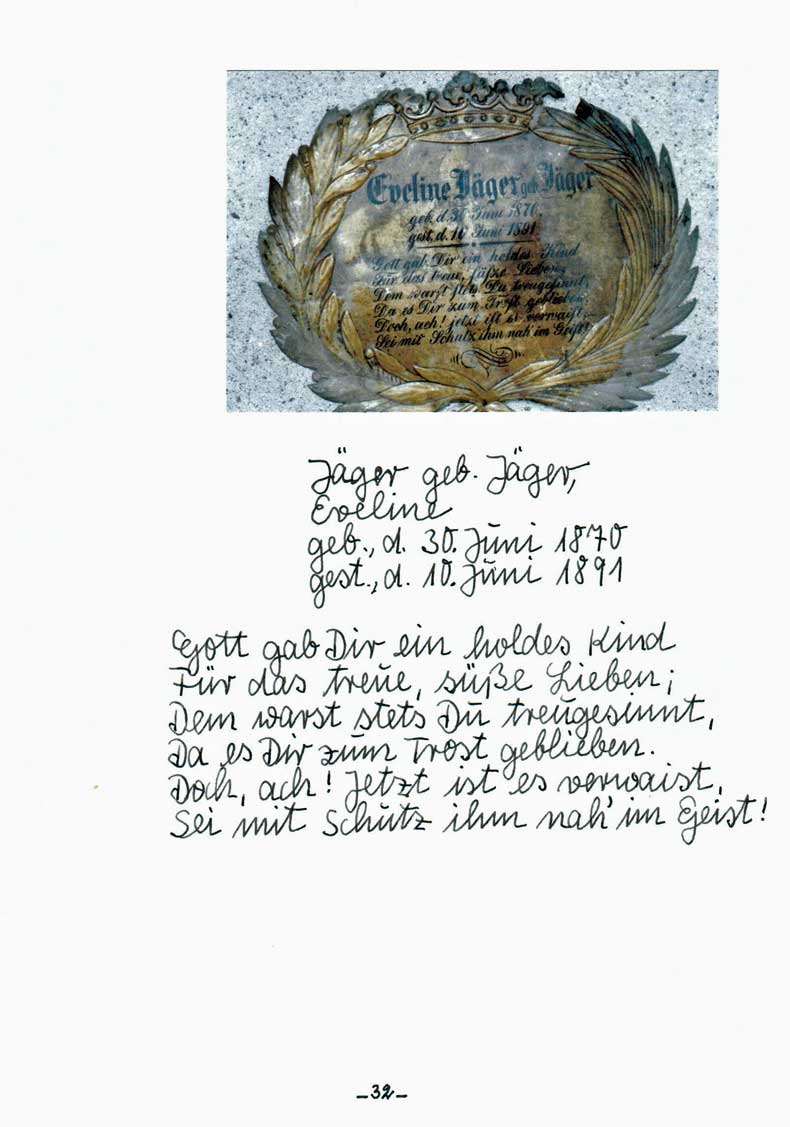 Eveline Jäger geb. Jäger
geb. d. 30 Juni 1870,
gest. d. 10 Juni 1891.
Gott gab Dir ein holdes Kind
Für das treue, süße Lieben;
Dem warst stets Du treugesinnt,
Da es Dir zum Trost geblieben.
Doch, ach! jetzt ist es verwaist,
Sei mit Schutz ihm nah' im Geist!
Jäger geb. Jäger,
Eveline
geb., d. 30. Juni 1870
gest., d. 10. Juni 1891
Gott gab Dir ein holdes Kind
Für das treue, süße Lieben;
Dem warst stets Du treugesinnt,
Da es Dir zum Trost geblieben.
Doch, ach! Jetzt ist es verwaist,
Sei mit Schutz ihm nah' im Geist!
-32-